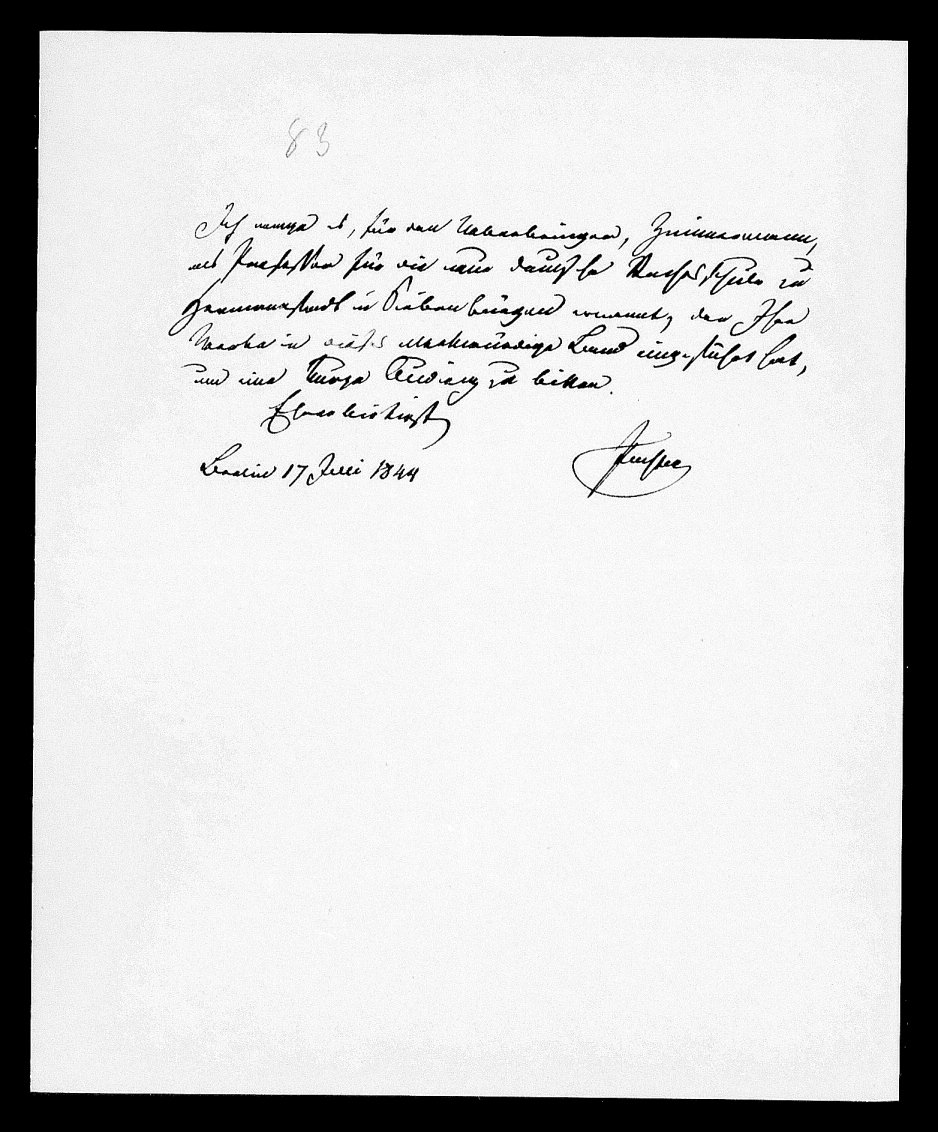 83
Ich wage es, für den Ueberbringer, Zimmermann,
als Professor für die neue deutsche Rechtsschule zu
Hermannstadt in Siebenbürgen ernannt, der Ihre
Werke in dieses merkwürdige Land eingeführt hat,
um eine kurze Audienz zu bitten.
Ehrerbietigst
Berlin 17 Juli 1844